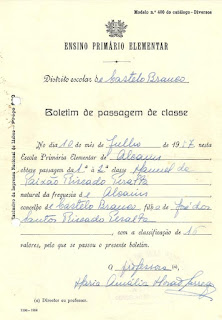 Modelo n.º 406 do catálogo - Diversos
ENSINO PRIMÁRIO ELEMENTAR
Distrito escolar de Castelo Branco
Boletim de passagem de classe
No dia 10 de mês de Julho de 1957 nesta
Escola Primária Elementar de Alcains
obteve passagem da 1.ª à 2.ª classe Manuel da
Paixão Riscado Peralta
natural da freguesia de Alcains
concelho de Castelo Branco filho de José dos
Santos Riscado Peralta
com a classificação de 15
valores, pelo que se passou o presente boletim.
A professora (a),
Maria Amália
(a) Director ou professor.